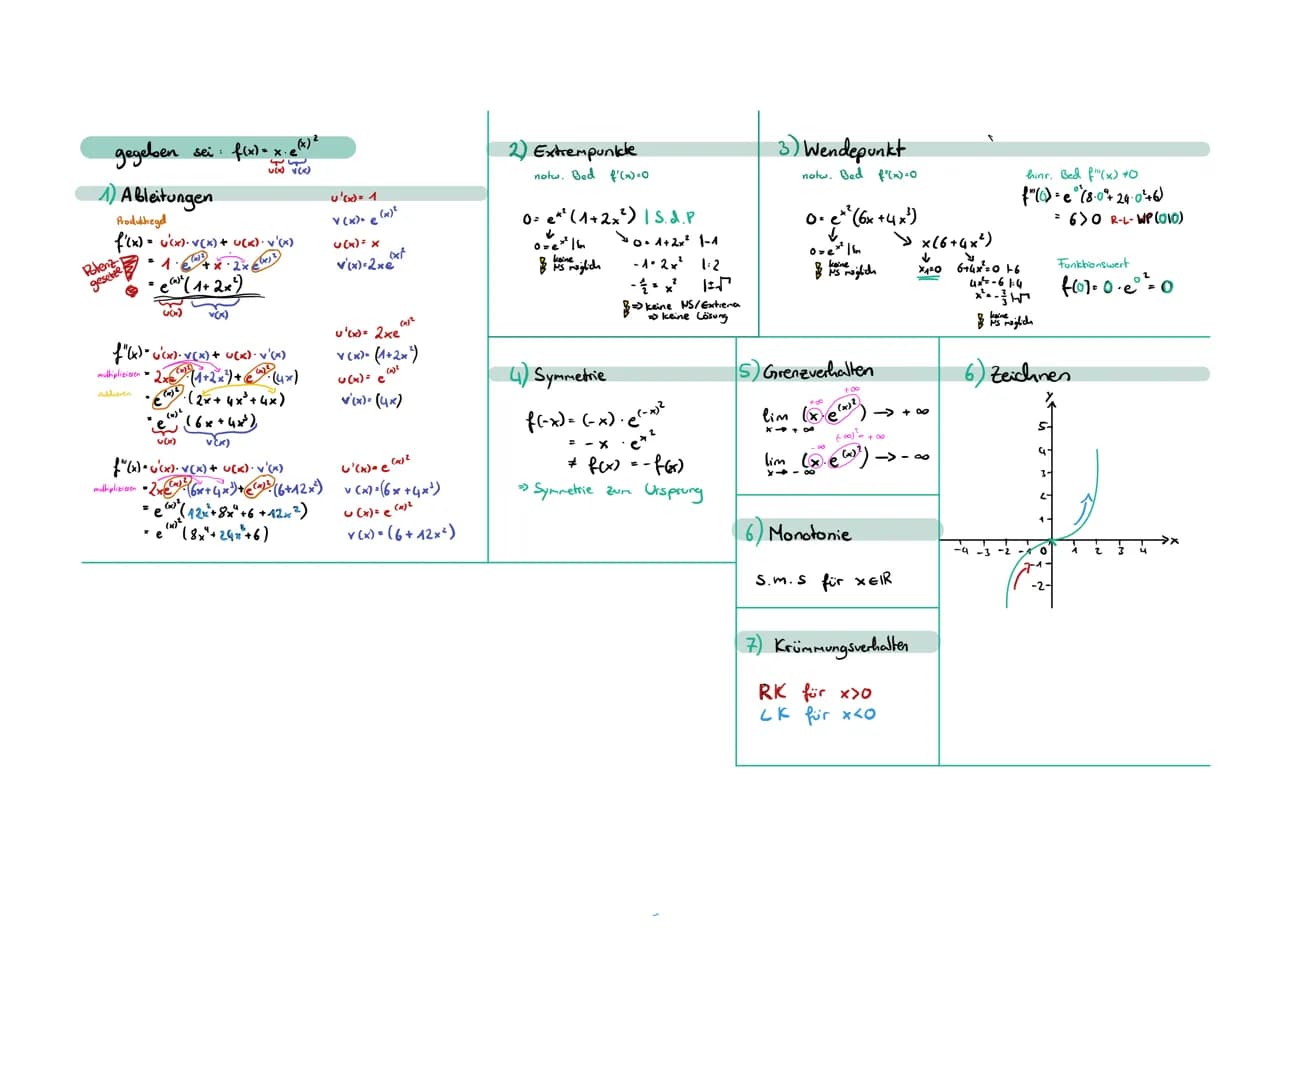 gegeben sei: f(x) = x · e^(x)^2
u(x) v(x)
1) Ableitungen
Produktregel
u'(x) = 1
v(x) = e^(x)^2
u(x) = x
v'(x) = 2xe^(x)^2
f'(x) = u'(x) · v(x) + u(x) · v'(x)
Potenzgesetze!
= 1 · e^(x)^2 + x · 2xe^(x)^2
= e^(x)^2 (1 + 2x^2)
u(x) v(x)
u'(x) = 2xe^(x)^2
v(x) = (1+2x^2)
u(x) = e^(x)^2
v'(x) = (4x)
f''(x) = u'(x) · v(x) + u(x) · v'(x)
multiplizieren = 2xe^(x)^2 · (1+2x^2) + e^(x)^2 · (4x)
addieren = e^(x)^2 · (2x + 4x^3 + 4x)
= e^(x)^2 (6x + 4x^3)
u(x) v(x)
f'''(x) = u'(x) · v(x) + u(x) · v'(x)
multiplizieren = 2xe^(x)^2 · (6x+4x^3) + e^(x)^2 · (6+12x^2)
= e^(x)^2 (12x^2 + 8x^4 + 6 + 12x^2)
= e^(x)^2 (8x^4 + 24x^2 + 6)
u'(x) = e^(x)^2
v(x) = (6x + 4x^3)
u(x) = e^(x)^2
v(x) = (6 + 12x^2)
2) Extrempunkte
notw. Bed f'(x)=0
0 = e^x^2 (1+2x^2) | S.d.P
0 = e^x^2 | ln
keine NS möglich
0 = 1+2x^2 |-1
-1 = 2x^2 |:2
-1/2 = x^2 |±√
=> keine NS/Extrema
=> keine Lösung
3) Wendepunkt
notw. Bed f''(x)=0
0 = e^x^2 (6x + 4x^3)
0 = e^x^2 | ln
keine NS möglich
x(6+4x^2)
x1=0
6+4x^2=0 |-6
4x^2=-6 |:4
x^2=-3/2 |√
keine NS möglich
hinr. Bed f'''(x) ≠0
f'''(0) = e^0^2 (8·0^4 + 24·0^2+6)
= 6 > 0 R-L-WP(0|0)
Funktionswert
f(0) = 0 · e^0^2 = 0
4) Symmetrie
f(-x) = (-x) · e^(-x)^2
= -x · e^x^2
≠ f(x) = -f(x)
=> Symmetrie zum Ursprung
5) Grenzverhalten
+∞ +∞
lim x→+∞ (x · e^(x)^2) → +∞
-∞ (-∞)^2 = +∞
lim x→-∞ (x · e^(x)^2) → -∞
6) Monotonie
s.m.s für x∈ℝ
7) Krümmungsverhalten
RK für x>0
LK für x<0
6) Zeichnen
y
5
4
3
2
1
-4 -3 -2 -1 0 1 2 3 4 x
-1
-2